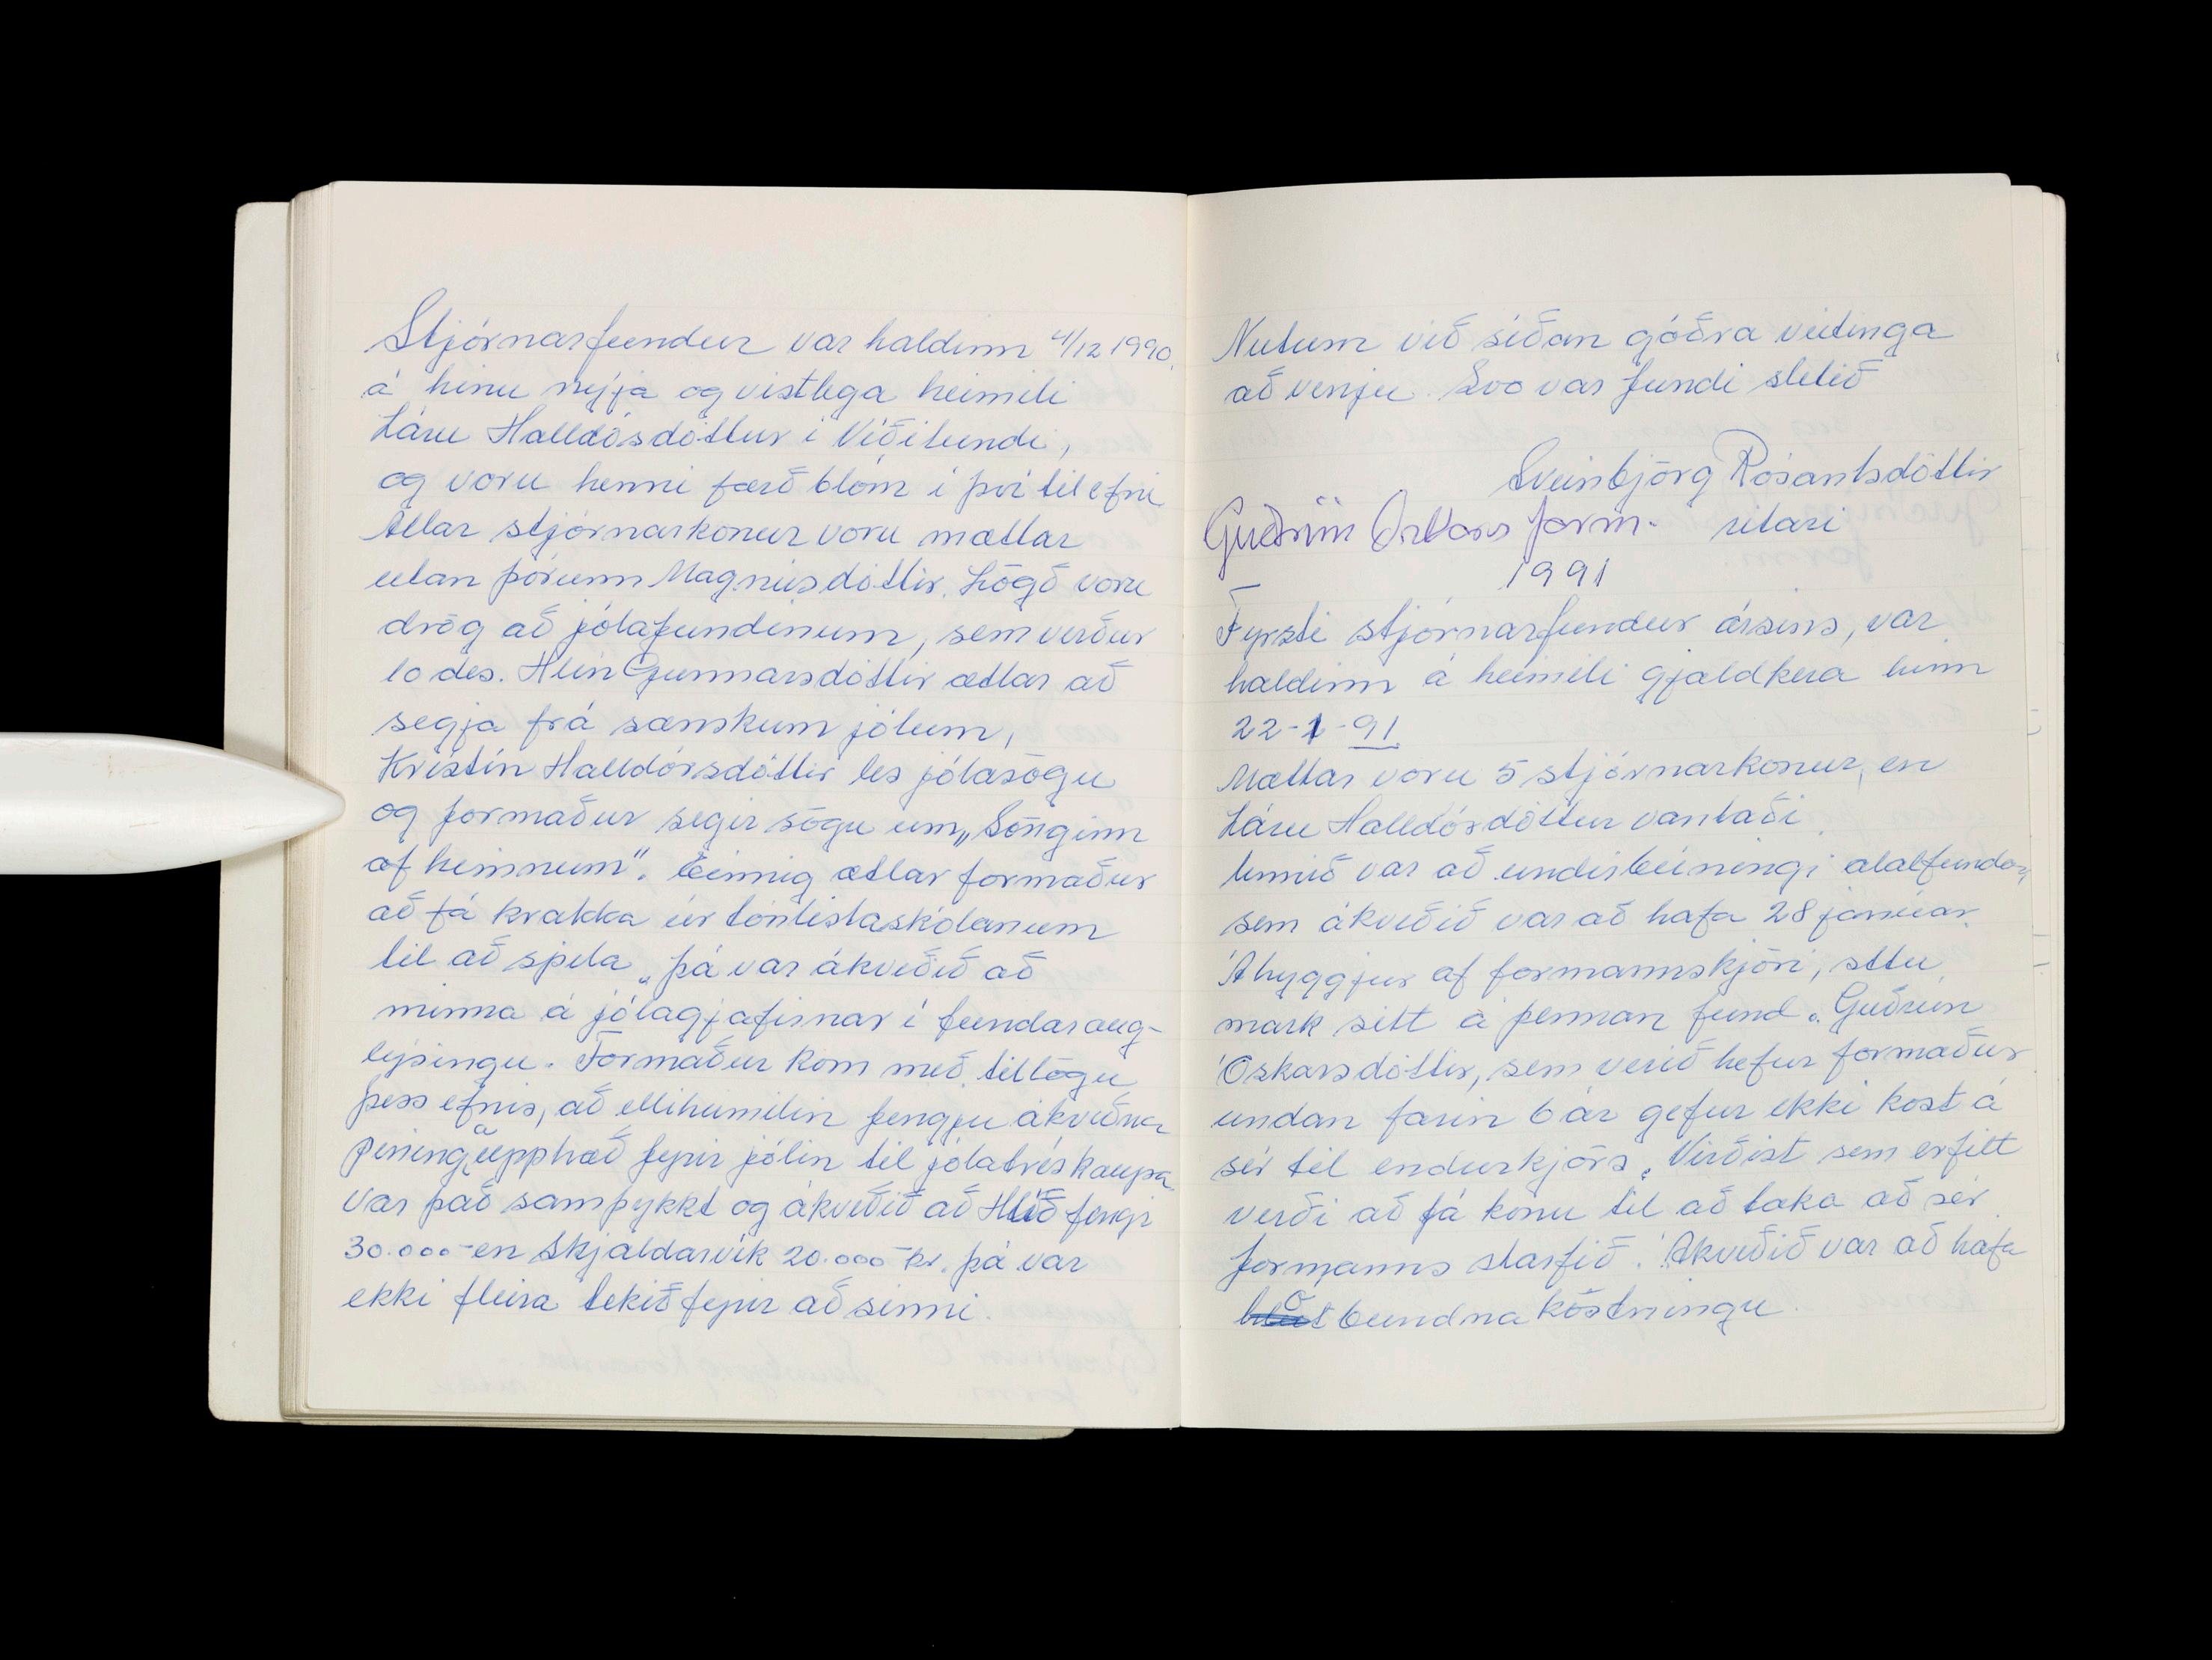 Stjórnarfundur var haldinn 4/12 1990.
á hinu nýja og vistlega heimili
Láru Halldórsdóttur í Víðilundi,
og voru henni færð blóm í því tilefni
Allar stjórnarkonur voru mættar
utan þórunn Magnúsdóttir. Lögð voru
drög að jólafundinum, sem verður
10 des. Hlín Gunnarsdóttir ætlar að
segja frá sænskum jólum,
Kristín Halldórsdóttir les jólasögu
og formaður segir sögu um „Sönginn
af himnum". Einnig ætlar formaður
að fá krakka úr tónlistaskólanum
til að spila. þá var ákveðið að
minna á jólagjafirnar í fundaraug-
lýsingu. Formaður kom með tillögu
þess efnis, að ellihimilin fengju ákveðna
peningaupphæð fyrir jólin til jólatréskaupa
Var það samþykkt og ákveðið að Hlíð fengi
30.000- en Skjaldarvík 20.000- kr. þá var
ekki fleira tekið fyrir að sinni.
Nutum við síðan góðra veitinga
að venju. Svo var fundi slitið
Sveinbjörg Rósantsdóttir
Guðrún Óskars form. ritari
1991
Fyrsti stjórnarfundur ársins, var
haldinn á heimili gjaldkera hinn
22-1-91
Mættar voru 5 stjórnarkonur, en
Láru Halldórsdóttur vantaði.
Unnið var að undirbúiningi alalfundar,
sem ákveðið var að hafa 28 janúar.
Áhyggjur af formannskjöri, sttu
mark sitt á þennan fund. Guðrún
Óskarsdóttir, sem verið hefur formaður
undan farin 6 ár gefur ekki kost á
sér til endurkjörs. Virðist sem erfitt
verði að fá konu til að taka að sér
formanns starfið. Ákveðið var að hafa
óbundna köstningu.